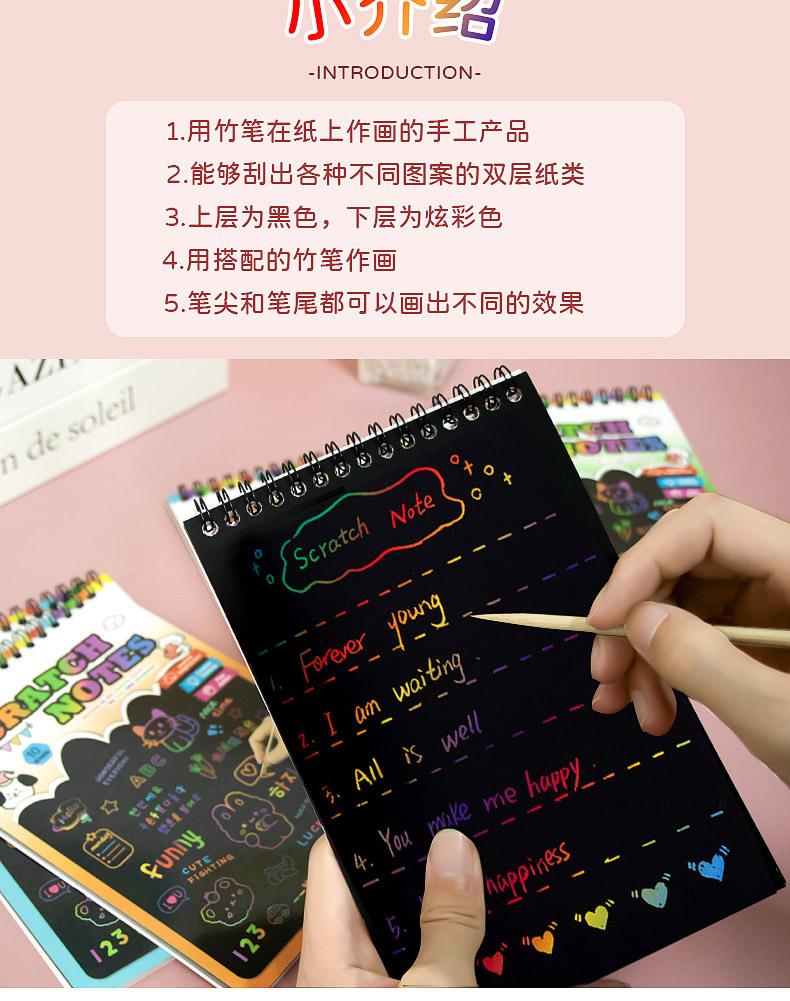 小介绍
-INTRODUCTION-
1.用竹笔在纸上作画的手工产品
2.能够刮出各种不同图案的双层纸类
3.上层为黑色，下层为炫彩色
4.用搭配的竹笔作画
5.笔尖和笔尾都可以画出不同的效果
n de soleil
Scratch Note
1. Forever young
2. I am waiting
3. All is well
4. You make me happy.
5. happiness
RATCH
NOTES
TCH
NOTES
ABC
funny
CUTE
FIGHTING
123
123